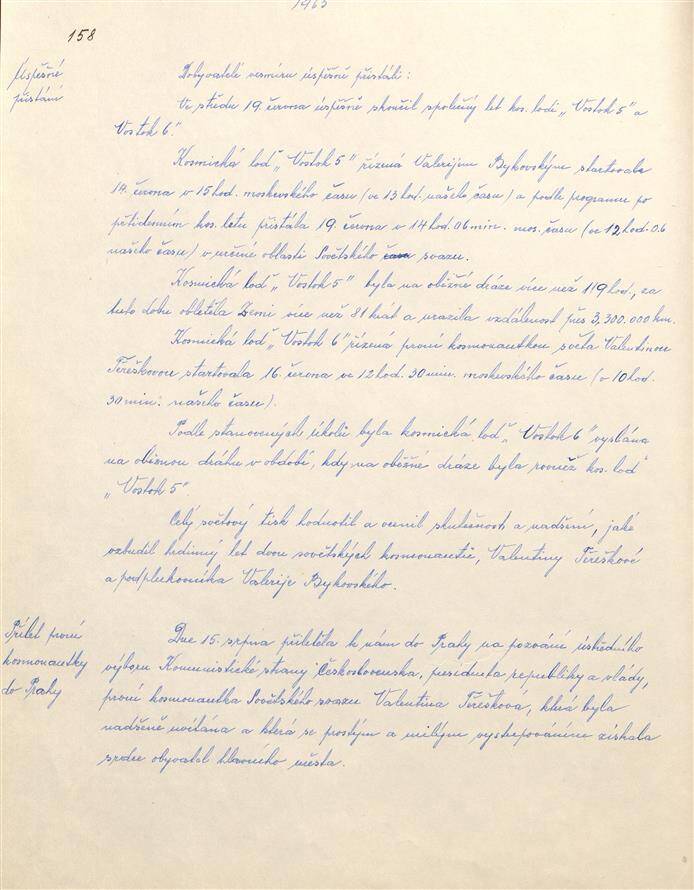 1963
158
Úspěšné
přistání
Dobyvatelé vesmíru úspěšně přistáli:
Ve středu 19. června úspěšně skončil společný let kos. lodí „Vostok 5" a
Vostok 6".
Kosmická loď „Vostok 5" řízená Valerijem Bykovským startovala
14. června v 15 hod. moskevského času (ve 13 hod. našeho času) a podle programu po
pětidenním kos. letu přistála 19. června v 14 hod. 06 min. mos. času (ve 12 hod. 06
našeho času) v určené oblasti Sovětského času svazu.
Kosmická loď „Vostok 5" byla na oběžné dráze více než 119 hod., za
tuto dobu obletěla Zemi více než 81 krát a urazila vzdálenost přes 3,300.000 km.
Kosmická loď „Vostok 6" řízená první kosmonautkou světa Valentinou
Těreškovou startovala 16. června ve 12 hod. 30 min. moskevského času (v 10 hod.
30 min. našeho času).
Podle stanovených úkolů byla kosmická loď „Vostok 6" vyslána
na oběžnou dráhu v období, kdy na oběžné dráze byla rovněž kos. loď
„Vostok 5".
Celý světový tisk hodnotil a ocenil skutečnost a nadšení, jaké
vzbudil hrdinný let dvou sovětských kosmonautů, Valentiny Těreškové
a podplukovníka Valerije Bykovského.
Přílet první
kosmonautky
do Prahy
Dne 15. srpna přiletěla k nám do Prahy na pozvání ústředního
výboru Komunistické strany Československa, presidenta republiky a vlády,
první kosmonautka Sovětského svazu Valentina Těrešková, která byla
nadšeně uvítána a která se prostým a milým vystupováním získala
srdce obyvatel hlavního města.